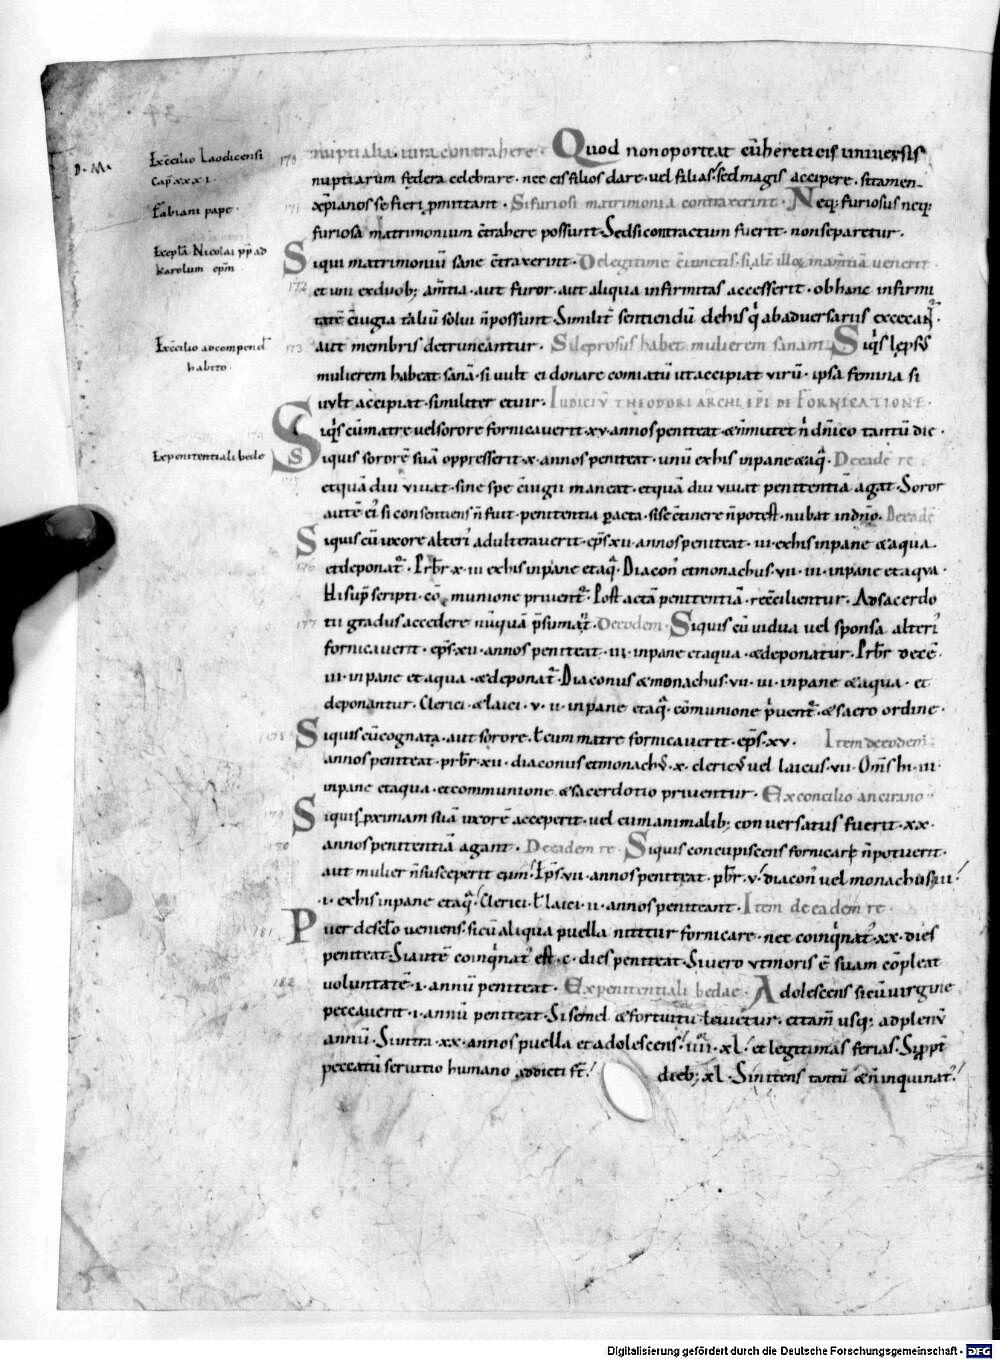 D. M.
Ex c̄cilio Laodicensi
Cap. xxxi.
Fabiani pape.
Ex epłā Nicolai pp̄ ad
karolum ep̄m.
Ex c̄cilio ad compend̄
habito.
Ex penitentiali bede
nuptialia iura contrahere. Quod non oporteat cū hereticis universis
nuptiarum federa celebrare. nec eis filios dare. vel filias! sed magis accipere. si tamen
xp̄ianos se fieri ꝓmittant. Si furiosi matrimonia contraxerint. Neq; furiosus neq;
furiosa matrimonium c̄trahere possunt. Sed si contractum fuerit. non separetur.
Siqui matrimoniū sane c̄traxerint. De legitime c̄iunctis. si alt̄ illoꝝ in am̄tiā venerit.
et uni ex duob; am̄tia. aut furor. aut aliqua infirmitas accesserit. ob hanc infirmi
tatē c̄iugia taliū solui n̄ possunt. Similit̄ sentiendū de his q' ab adversariis excecant̄.
aut membris detruncantur. Si leprosus habet mulierem sanam. Siq's lepsꝰ
mulierem habeat sanā. si vult ei donare comiatū ut accipiat virū. ipsa femina si
vult accipiat. similiter et vir. IUDICIV̄ THEODORI ARCHIEP̄I DE FORNICATIONE.
Siq's cū matre vel sorore fornicaverit. xv. annos peniteat. & n̄ mutet n̄ dn̄ico tantū die.
Siquis sororē suā oppresserit. x. annos peniteat. unū ex his in pane & aq̄. De eadē re.
et quā diu vivat. sine spe c̄iugii maneat. et quā diu vivat penitentiā agat. Soror
autē ei' si consentiens n̄ fuit. penitentia ꝑacta. si se c̄tinere n̄ potest. nubat in dn̄o. De eadē
Siquis cū uxore alteri' adulteraverit. ep̄s. xii. annos peniteat. iii. ex his in pane & aqua.
et deponat'. Pr̄br. x. iii ex his in pane et aq̄. Diacon' et monachus. vii. iii. in pane et aqua.
Hi sup̄scripti. cōmunione privent'. Post actā penitentiā. rec̄cilientur. Ad sacerdo
tii gradus accedere nūquā p̄sumat'. De eodem. Siquis cū vidua vel sponsa alteri'
fornicaverit. ep̄s. xii. annos peniteat. iii. in pane et aqua. & deponatur. Pr̄br decē.
iii. in pane et aqua. & deponat'. Diaconus & monachus. vii. iii. in pane & aqua. et
deponantur. Clerici. & laici. v. ii. in pane et aq̄. cōmunione p'vent'. & sacro ordine.
Siquis cū cognata. aut sorore. ł cum matre fornicaverit. ep̄s. xv. Item de eodem.
annos peniteat. pr̄br. xii. diaconus et monachꝰ. x. clericꝰ vel laicus. vii. Om̄s hi. iii.
in pane et aqua. et communione & sacerdotio priventur. Ex concilio ancirano.
Siquis ꝓximam suā uxorē acceperit. vel cum animalib; conversatus fuerit. xx.
annos penitentiā agant. De eadem re. Siquis concupiscens fornicare n̄ potuerit.
aut mulier n̄ susceperit eum! Ep̄s. vii. annos peniteat. pbr̄. v! diacon' vel monachus. iii!
.i. ex his in pane et aq̄! Clerici. ł laici. ii. annos peniteant. Item de eadem re.
Puer de sclo veniens. si cū aliqua puella nititur fornicare. nec coinq'nat'. xx. dies
peniteat. Si autē coinq'nat' est. c. dies peniteat. Si vero ut moris ē suam cōpleat
voluntatē. i. annū peniteat. Ex penitentiali bedae. Adolescens si cū virgine
peccaverit. i. annū peniteat. Si semel & fortuitu. levietur. et tam̄ usq; ad plenū
annū. Si intra. xx. annos puella et adolescens! iii. xl! et legitimas ferias. Si ꝓpt̄
peccatū servitio humano addicti st̄! dieb; xl. Si nitens tantū & n̄ inquinat'!
170
171
172
173
175
176
177
178
180
181
182
Digitalisierung gefördert durch die Deutsche Forschungsgemeinschaft - DFG